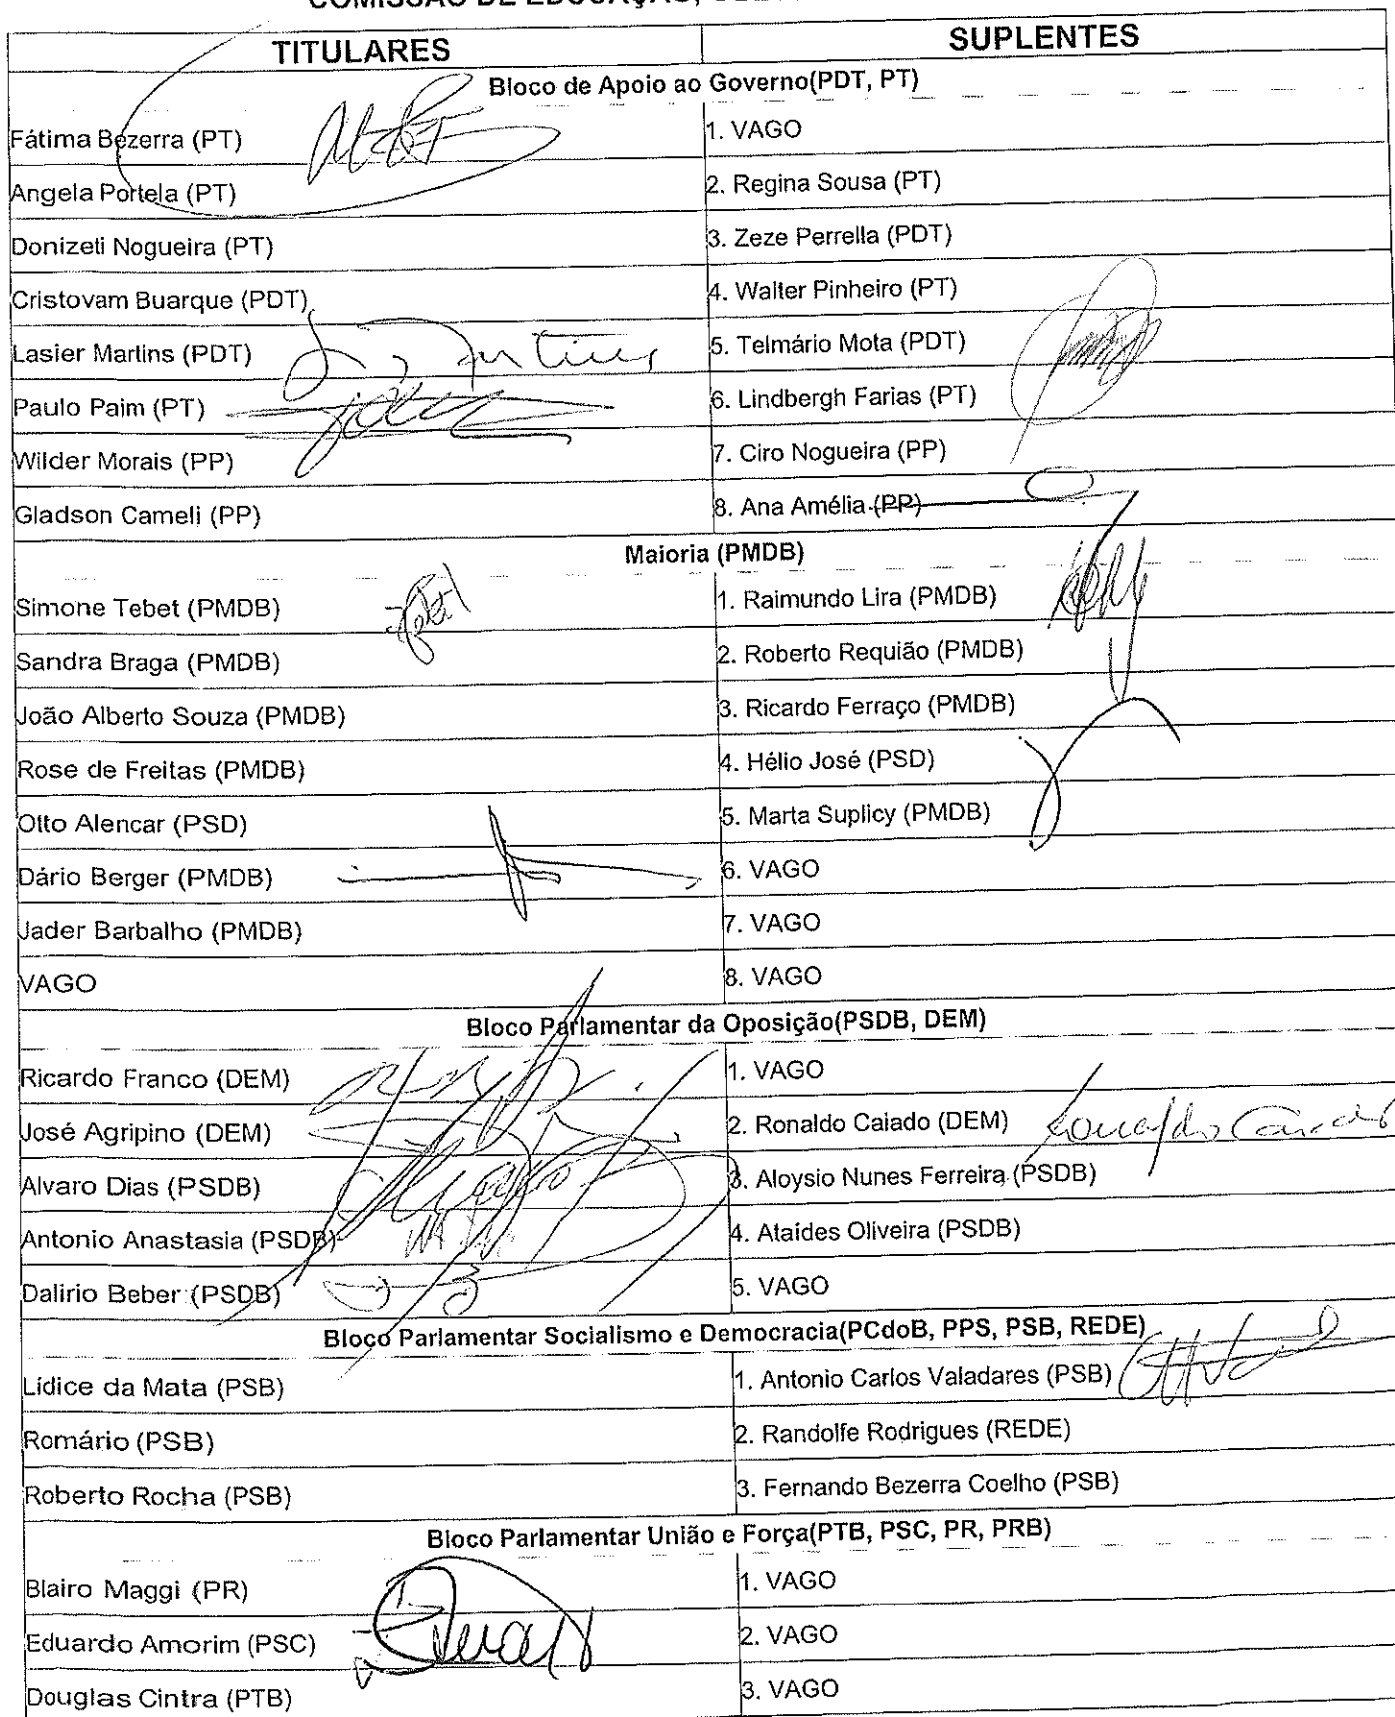 COMISSÃO DE EDUCAÇÃO,
TITULARES SUPLENTES
Bloco de Apoio ao Governo(PDT, PT)
Fátima Bezerra (PT) 1. VAGO
Angela Portela (PT) 2. Regina Sousa (PT)
Donizeti Nogueira (PT) 3. Zeze Perrella (PDT)
Cristovam Buarque (PDT) 4. Walter Pinheiro (PT)
Lasier Martins (PDT) 5. Telmário Mota (PDT)
Paulo Paim (PT) 6. Lindbergh Farias (PT)
Wilder Morais (PP) 7. Ciro Nogueira (PP)
Gladson Cameli (PP) 8. Ana Amélia (PP)
Maioria (PMDB)
Simone Tebet (PMDB) 1. Raimundo Lira (PMDB)
Sandra Braga (PMDB) 2. Roberto Requião (PMDB)
João Alberto Souza (PMDB) 3. Ricardo Ferraço (PMDB)
Rose de Freitas (PMDB) 4. Hélio José (PSD)
Otto Alencar (PSD) 5. Marta Suplicy (PMDB)
Dário Berger (PMDB) 6. VAGO
Jader Barbalho (PMDB) 7. VAGO
VAGO 8. VAGO
Bloco Parlamentar da Oposição(PSDB, DEM)
Ricardo Franco (DEM) 1. VAGO
José Agripino (DEM) 2. Ronaldo Caiado (DEM) Ronaldo Caiado
Alvaro Dias (PSDB) 3. Aloysio Nunes Ferreira (PSDB)
Antonio Anastasia (PSDB) 4. Ataídes Oliveira (PSDB)
Dalirio Beber (PSDB) 5. VAGO
Bloco Parlamentar Socialismo e Democracia(PCdoB, PPS, PSB, REDE)
Lídice da Mata (PSB) 1. Antonio Carlos Valadares (PSB)
Romário (PSB) 2. Randolfe Rodrigues (REDE)
Roberto Rocha (PSB) 3. Fernando Bezerra Coelho (PSB)
Bloco Parlamentar União e Força(PTB, PSC, PR, PRB)
Blairo Maggi (PR) 1. VAGO
Eduardo Amorim (PSC) 2. VAGO
Douglas Cintra (PTB) 3. VAGO